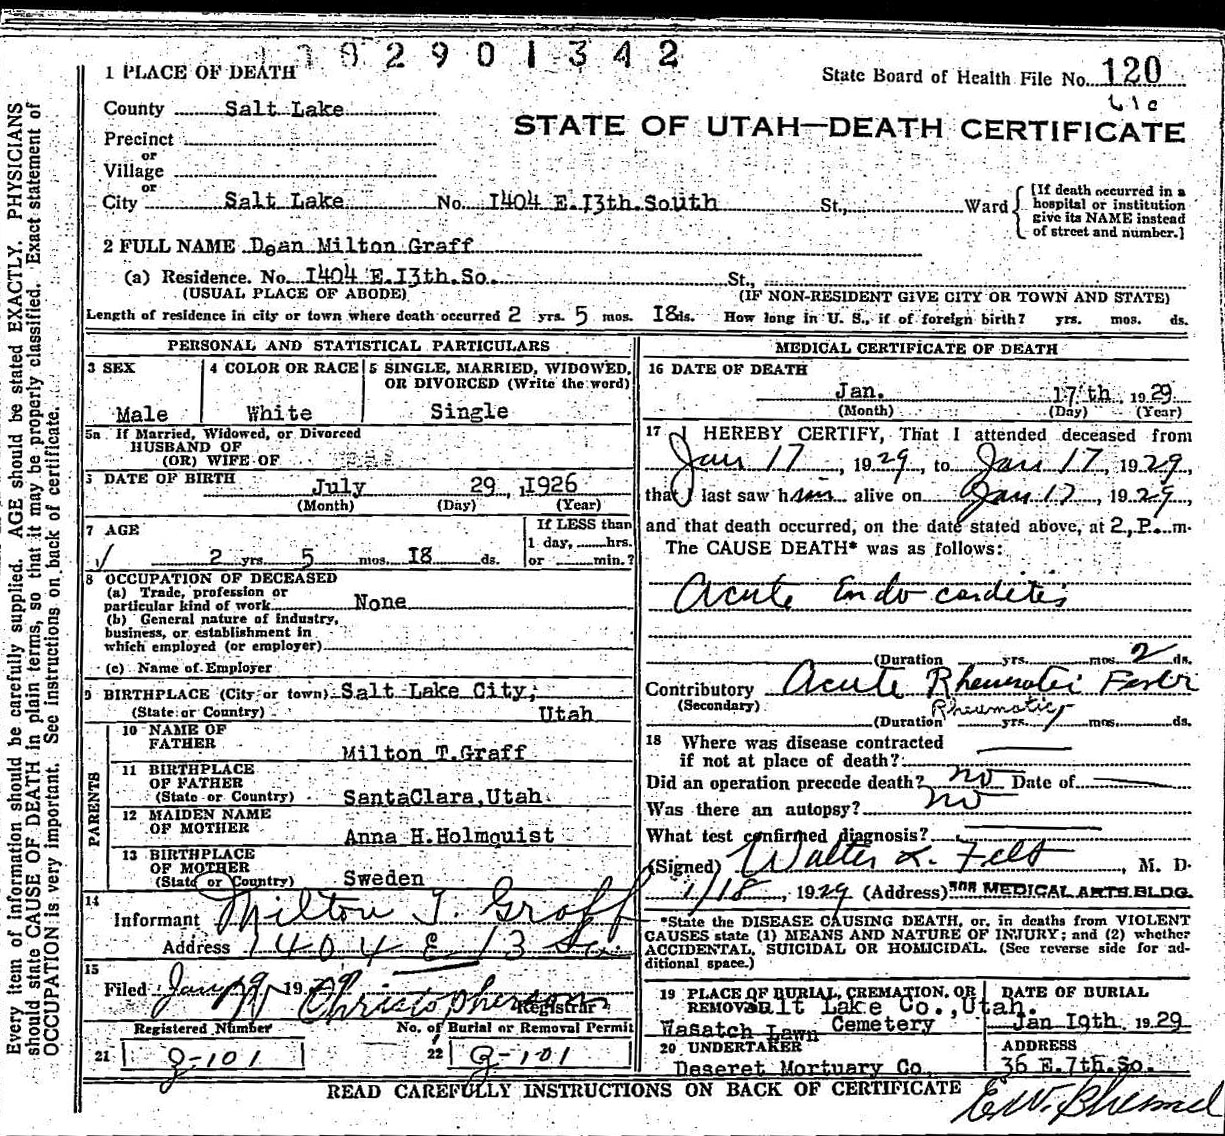 2901342
1 PLACE OF DEATH
State Board of Health File No. 120
61c
County Salt Lake
STATE OF UTAH—DEATH CERTIFICATE
Precinct
or
Village
or
City Salt Lake No. I404 E.I3th.South St., Ward {[If death occurred in a hospital or institution give its NAME instead of street and number.]
2 FULL NAME Dean Milton Graff
(a) Residence. No. I404 E.I3th.So. St.,
(USUAL PLACE OF ABODE) (IF NON-RESIDENT GIVE CITY OR TOWN AND STATE)
Length of residence in city or town where death occurred 2 yrs. 5 mos. I8 ds. How long in U. S., if of foreign birth? yrs. mos. ds.
PERSONAL AND STATISTICAL PARTICULARS
3 SEX
Male
4 COLOR OR RACE
White
5 SINGLE, MARRIED, WIDOWED,
OR DIVORCED (Write the word)
Single
5a If Married, Widowed, or Divorced
HUSBAND OF
(OR) WIFE OF
6 DATE OF BIRTH
July 29 ,1926
(Month) (Day) (Year)
7 AGE
2 yrs. 5 mos. I8 ds.
If LESS than
1 day, hrs.
or min.?
8 OCCUPATION OF DECEASED
(a) Trade, profession or
particular kind of work None
(b) General nature of industry,
business, or establishment in
which employed (or employer)
(c) Name of Employer
9 BIRTHPLACE (City or town) Salt Lake City,
(State or Country) Utah
PARENTS
10 NAME OF
FATHER Milton T.Graff
11 BIRTHPLACE
OF FATHER
(State or Country) SantaClara,Utah.
12 MAIDEN NAME
OF MOTHER Anna H.Holmquist
13 BIRTHPLACE
OF MOTHER
(State or Country) Sweden
14
Informant Milton T. Graff
Address 1404 E 13 So.
15
Filed Jan 19 1929 Christopherson
Registrar
Registered Number No. of Burial or Removal Permit
21 g-101 22 g-101
MEDICAL CERTIFICATE OF DEATH
16 DATE OF DEATH
Jan. 17th. 1929
(Month) (Day) (Year)
17 I HEREBY CERTIFY, That I attended deceased from
Jan 17, 1929, to Jan 17, 1929,
that I last saw him alive on Jan 17, 1929,
and that death occurred, on the date stated above, at 2.P. m.
The CAUSE DEATH* was as follows:
Acute Endocarditis
(Duration yrs. mos. 2 ds.
Contributory Acute Rheumatic Fever
(Secondary) Rheumatic
(Duration yrs. mos. ds.
18 Where was disease contracted
if not at place of death?
Did an operation precede death? no Date of
Was there an autopsy? no
What test confirmed diagnosis?
(Signed) Walter L. Felt, M. D.
1/18, 1929 (Address) MEDICAL ARTS BLDG.
*State the DISEASE CAUSING DEATH, or, in deaths from VIOLENT
CAUSES state (1) MEANS AND NATURE OF INJURY; and (2) whether
ACCIDENTAL, SUICIDAL OR HOMICIDAL. (See reverse side for ad-
ditional space.)
19 PLACE OF BURIAL, CREMATION, OR
REMOVAL Salt Lake Co.,Utah.
Wasatch Lawn Cemetery
DATE OF BURIAL
Jan I9th. 1929
20 UNDERTAKER
Deseret Mortuary Co.
ADDRESS
36 E.7th.So.
READ CAREFULLY INSTRUCTIONS ON BACK OF CERTIFICATE
Every item of information should be carefully supplied. AGE should be stated EXACTLY. PHYSICIANS
should state CAUSE OF DEATH in plain terms, so that it may be properly classified. Exact statement of
OCCUPATION is very important. See instructions on back of certificate.